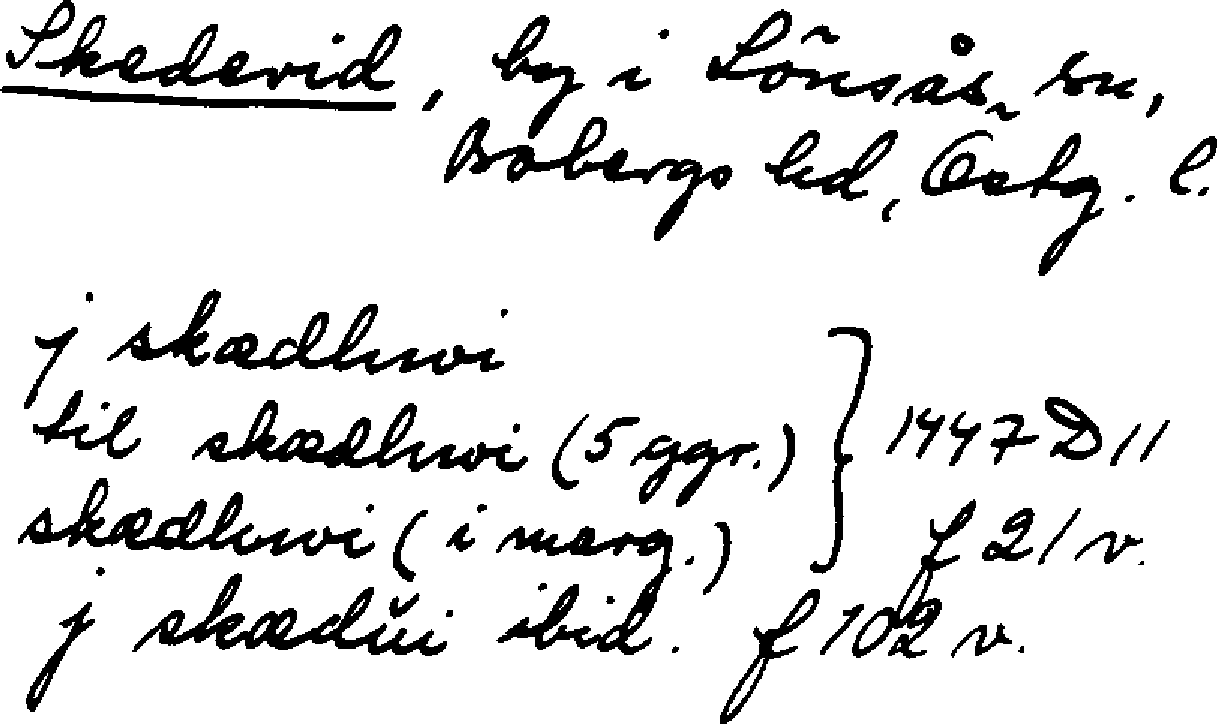 Skedevid, by i Lönsås sn,
Bobergs hd, Östg. l.
j skædhwi
til skædhwi (5 ggr.) } 1447 D 11
skædhwi (i marg.) f 21 v.
j skædŭi ibid. f 102 v.